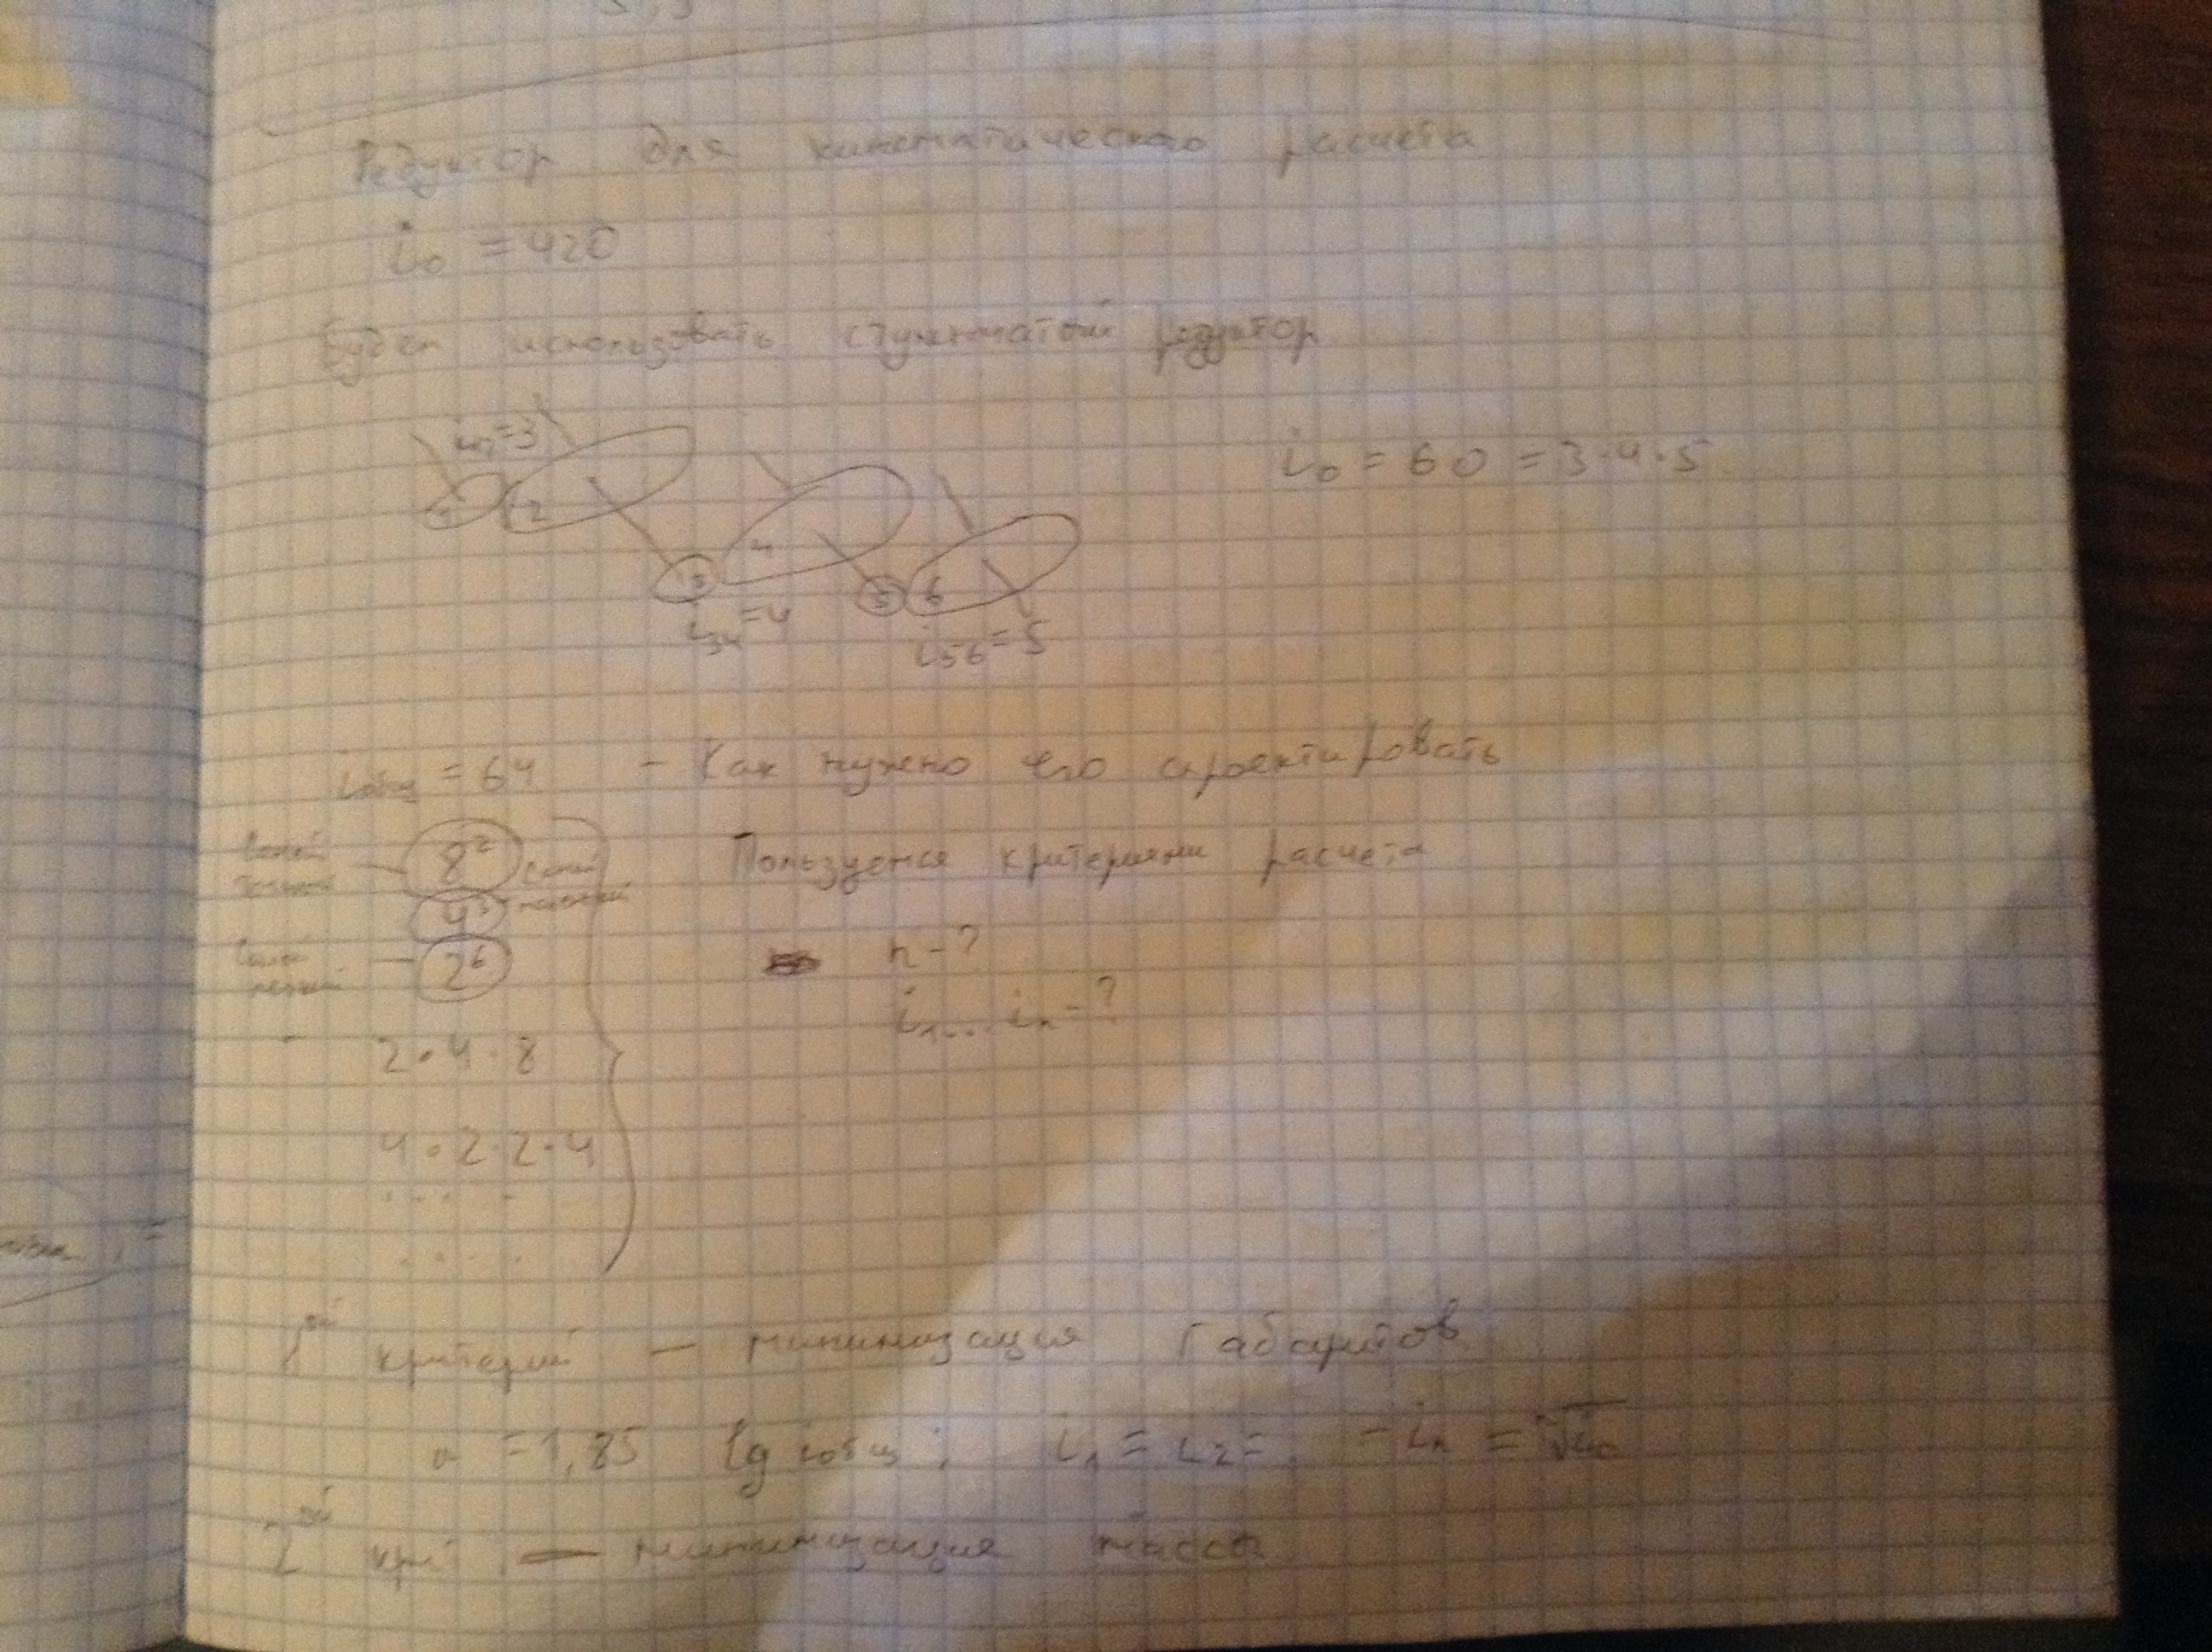 Редуктор для кинематического расчета
i₀ = 420
Будем использовать ступенчатый редуктор
i₁₂ = 3
1 2 3 4 5 6
i₃₄ = 4
i₅₆ = 5
i₀ = 60 = 3·4·5
iобщ = 64 - Как нужно его спроектировать
Самый точный 8²
4³ Самый
Самый легкий 2⁶
2·4·8
4·2·2·4
Пользуемся критериями расчета
n - ?
i₁...iₙ - ?
1ый критерий — минимизация габаритов
n = 1,85 lg iобщ; i₁ = i₂ = = iₙ = ⁿ√i₀
2ой крит — минимизация массы